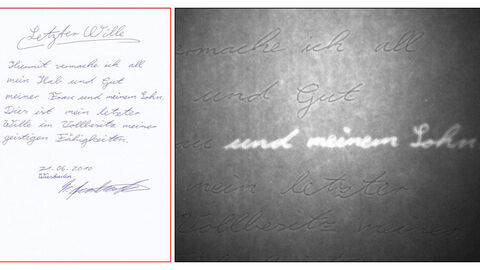 Letzter Wille
Hiermit vermache ich all
mein Hab und Gut
meiner Frau und meinem Sohn.
Dies ist mein letzter
Wille im Vollbesitz meiner
geistigen Fähigkeiten.
21.06.2010
Wiesbaden
vermache ich all
und Gut
und meinem Sohn.
mein letzter
Vollbesitz meiner